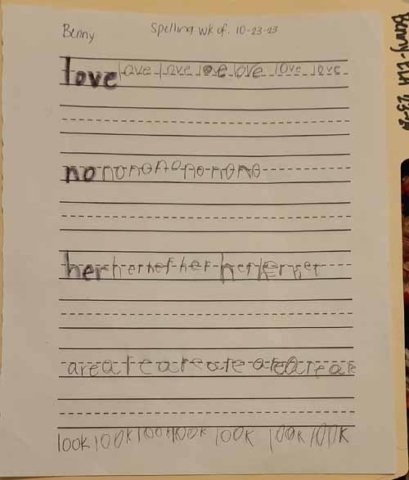 Benny Spelling wk of. 10-23-23
love love love love love love love
no no no no no no no
her her her her her her her
are are are are are are are
look look look look look look look